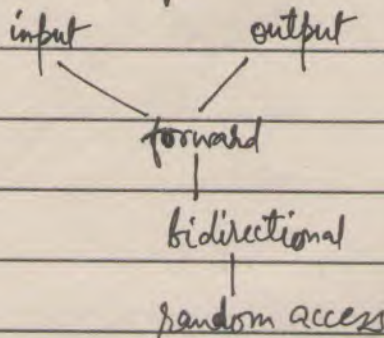 input output
forward
bidirectional
random access